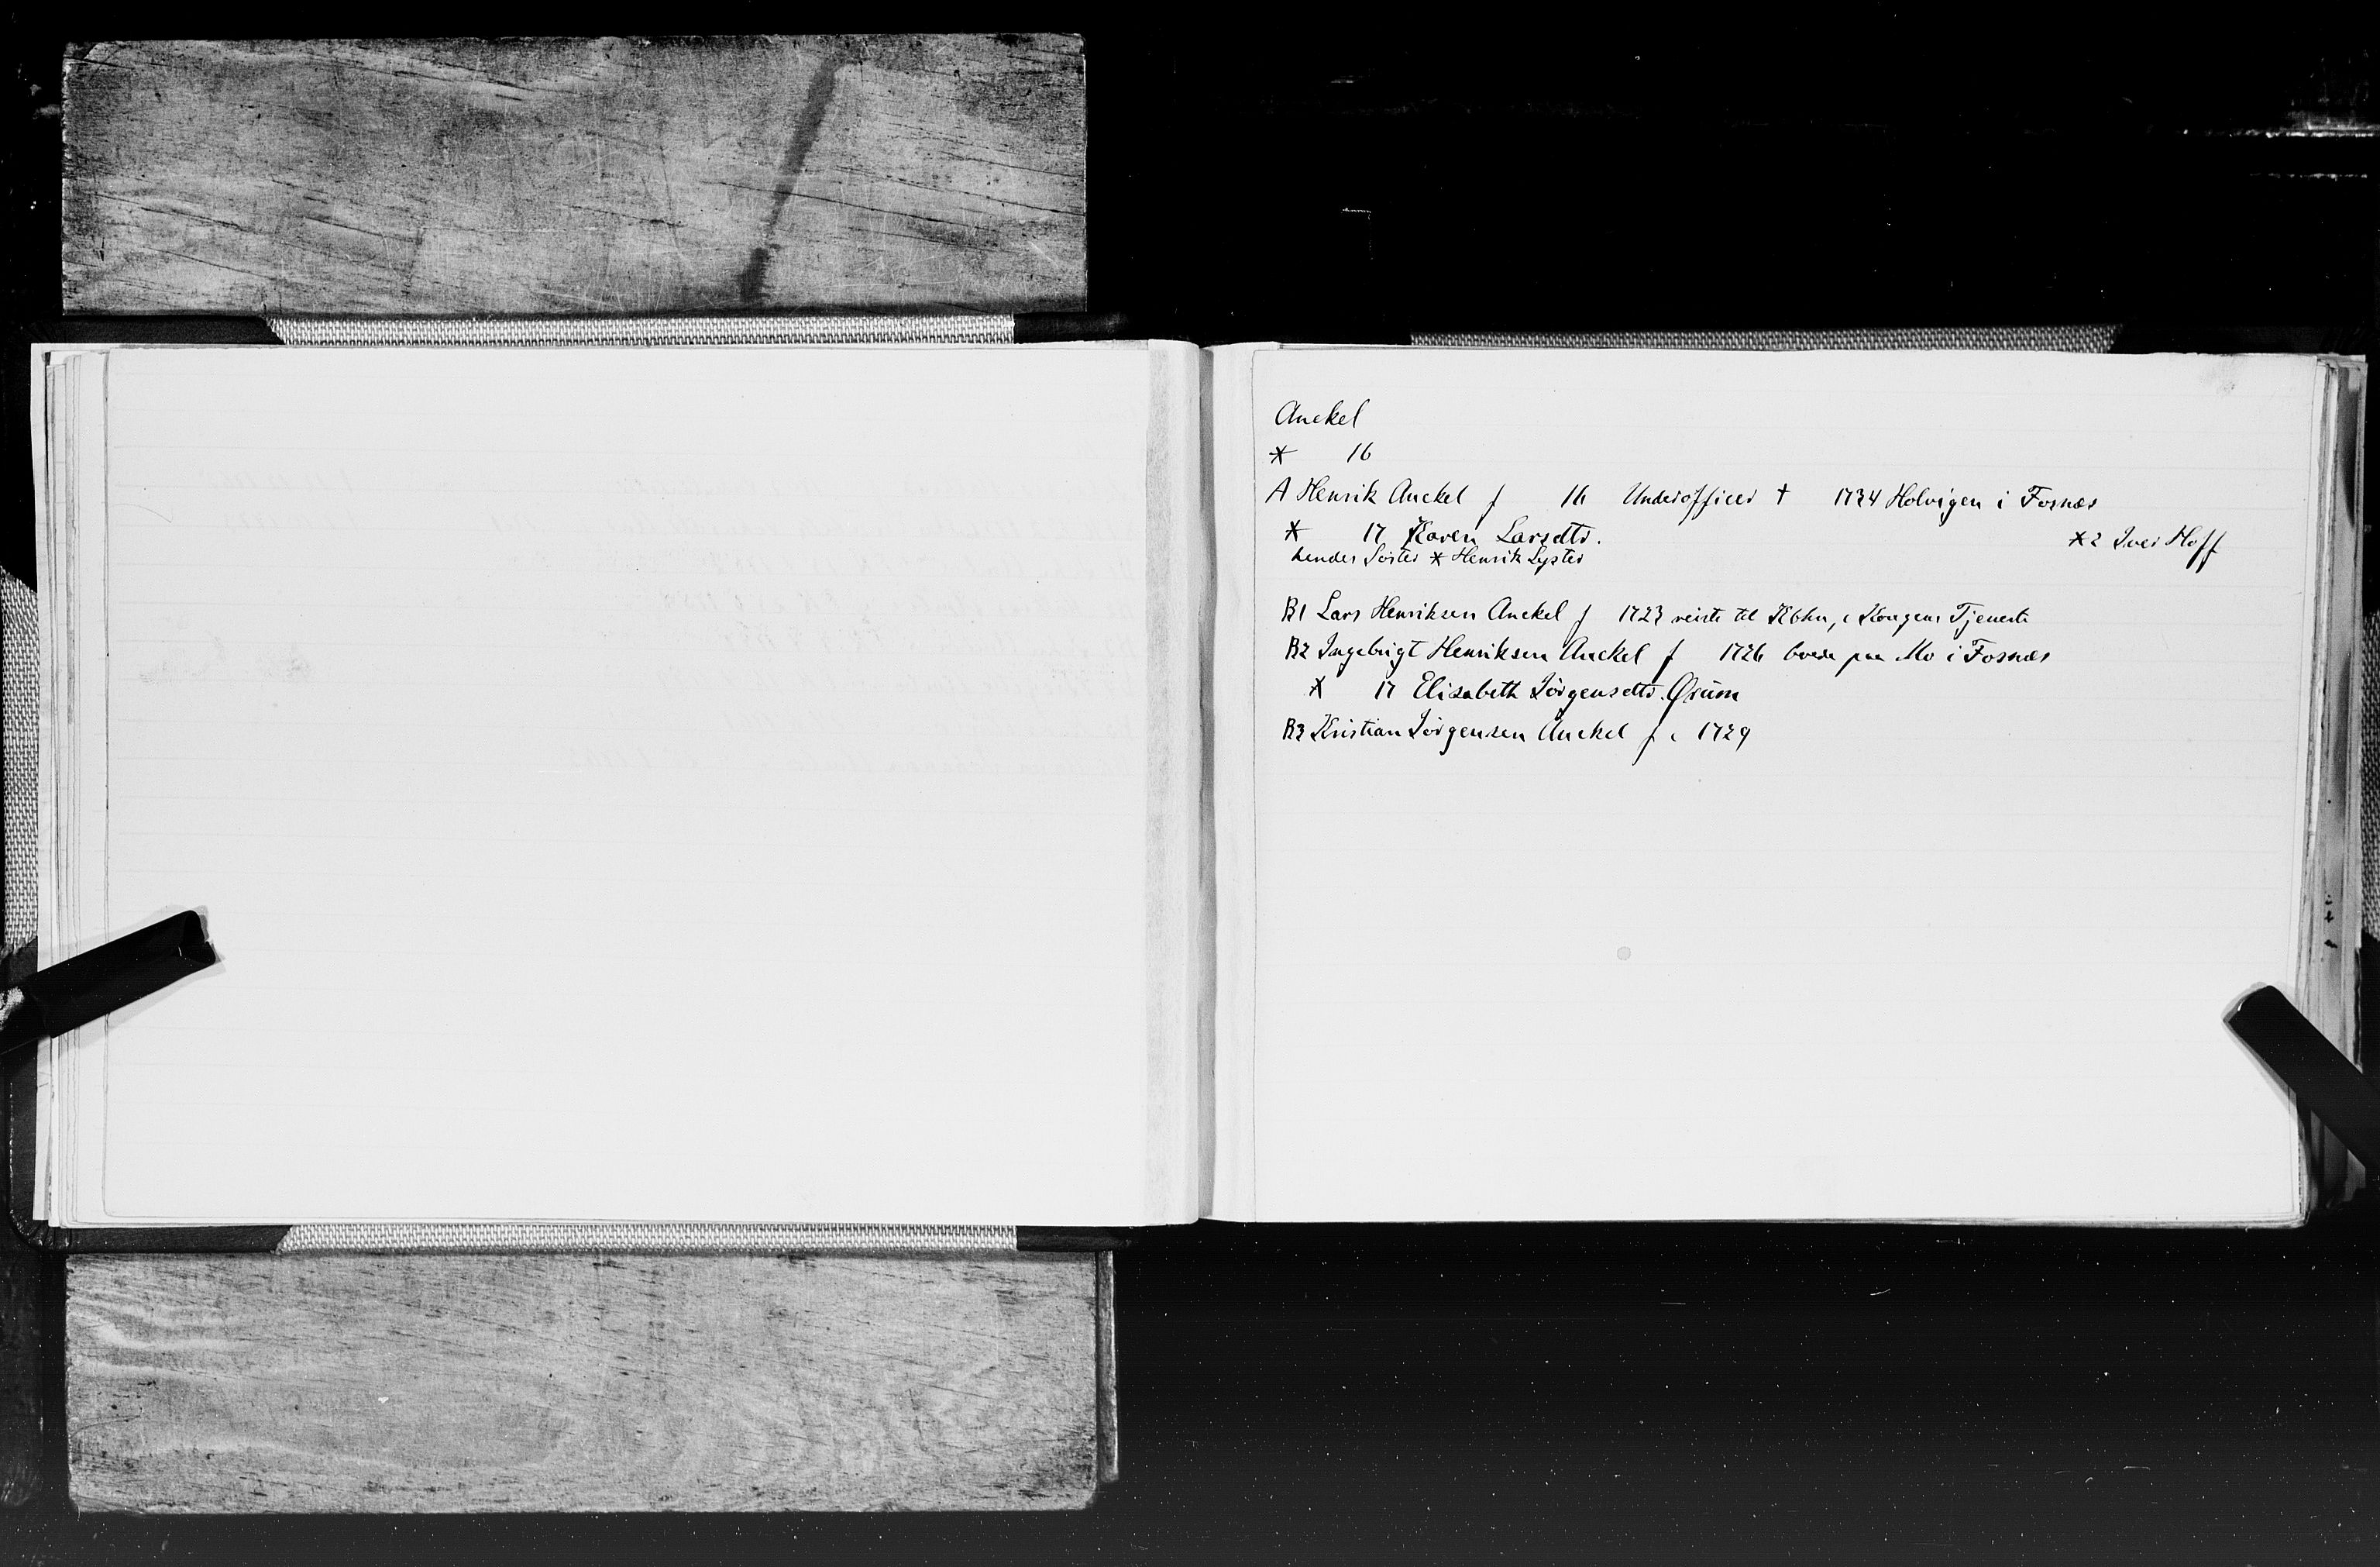 Anckel
* 16
A Henrik Anckel f 16 Underofficer † 1734 Holvigen i Fosnæs
* 17 Karen Larsdtr. *2 Iver Hoff
hendes Söster * Henrik Lyster
B1 Lars Henriksen Anckel f 1723 reiste til Kbhn, i Kongens Tjeneste
B2 Ingebrigt Henriksen Anckel f 1726 boede paa Mo i Fosnæs
* 17 Elisabeth Jörgensdtr. Ørum
B3 Kristian Jörgensen Anckel f c 1729